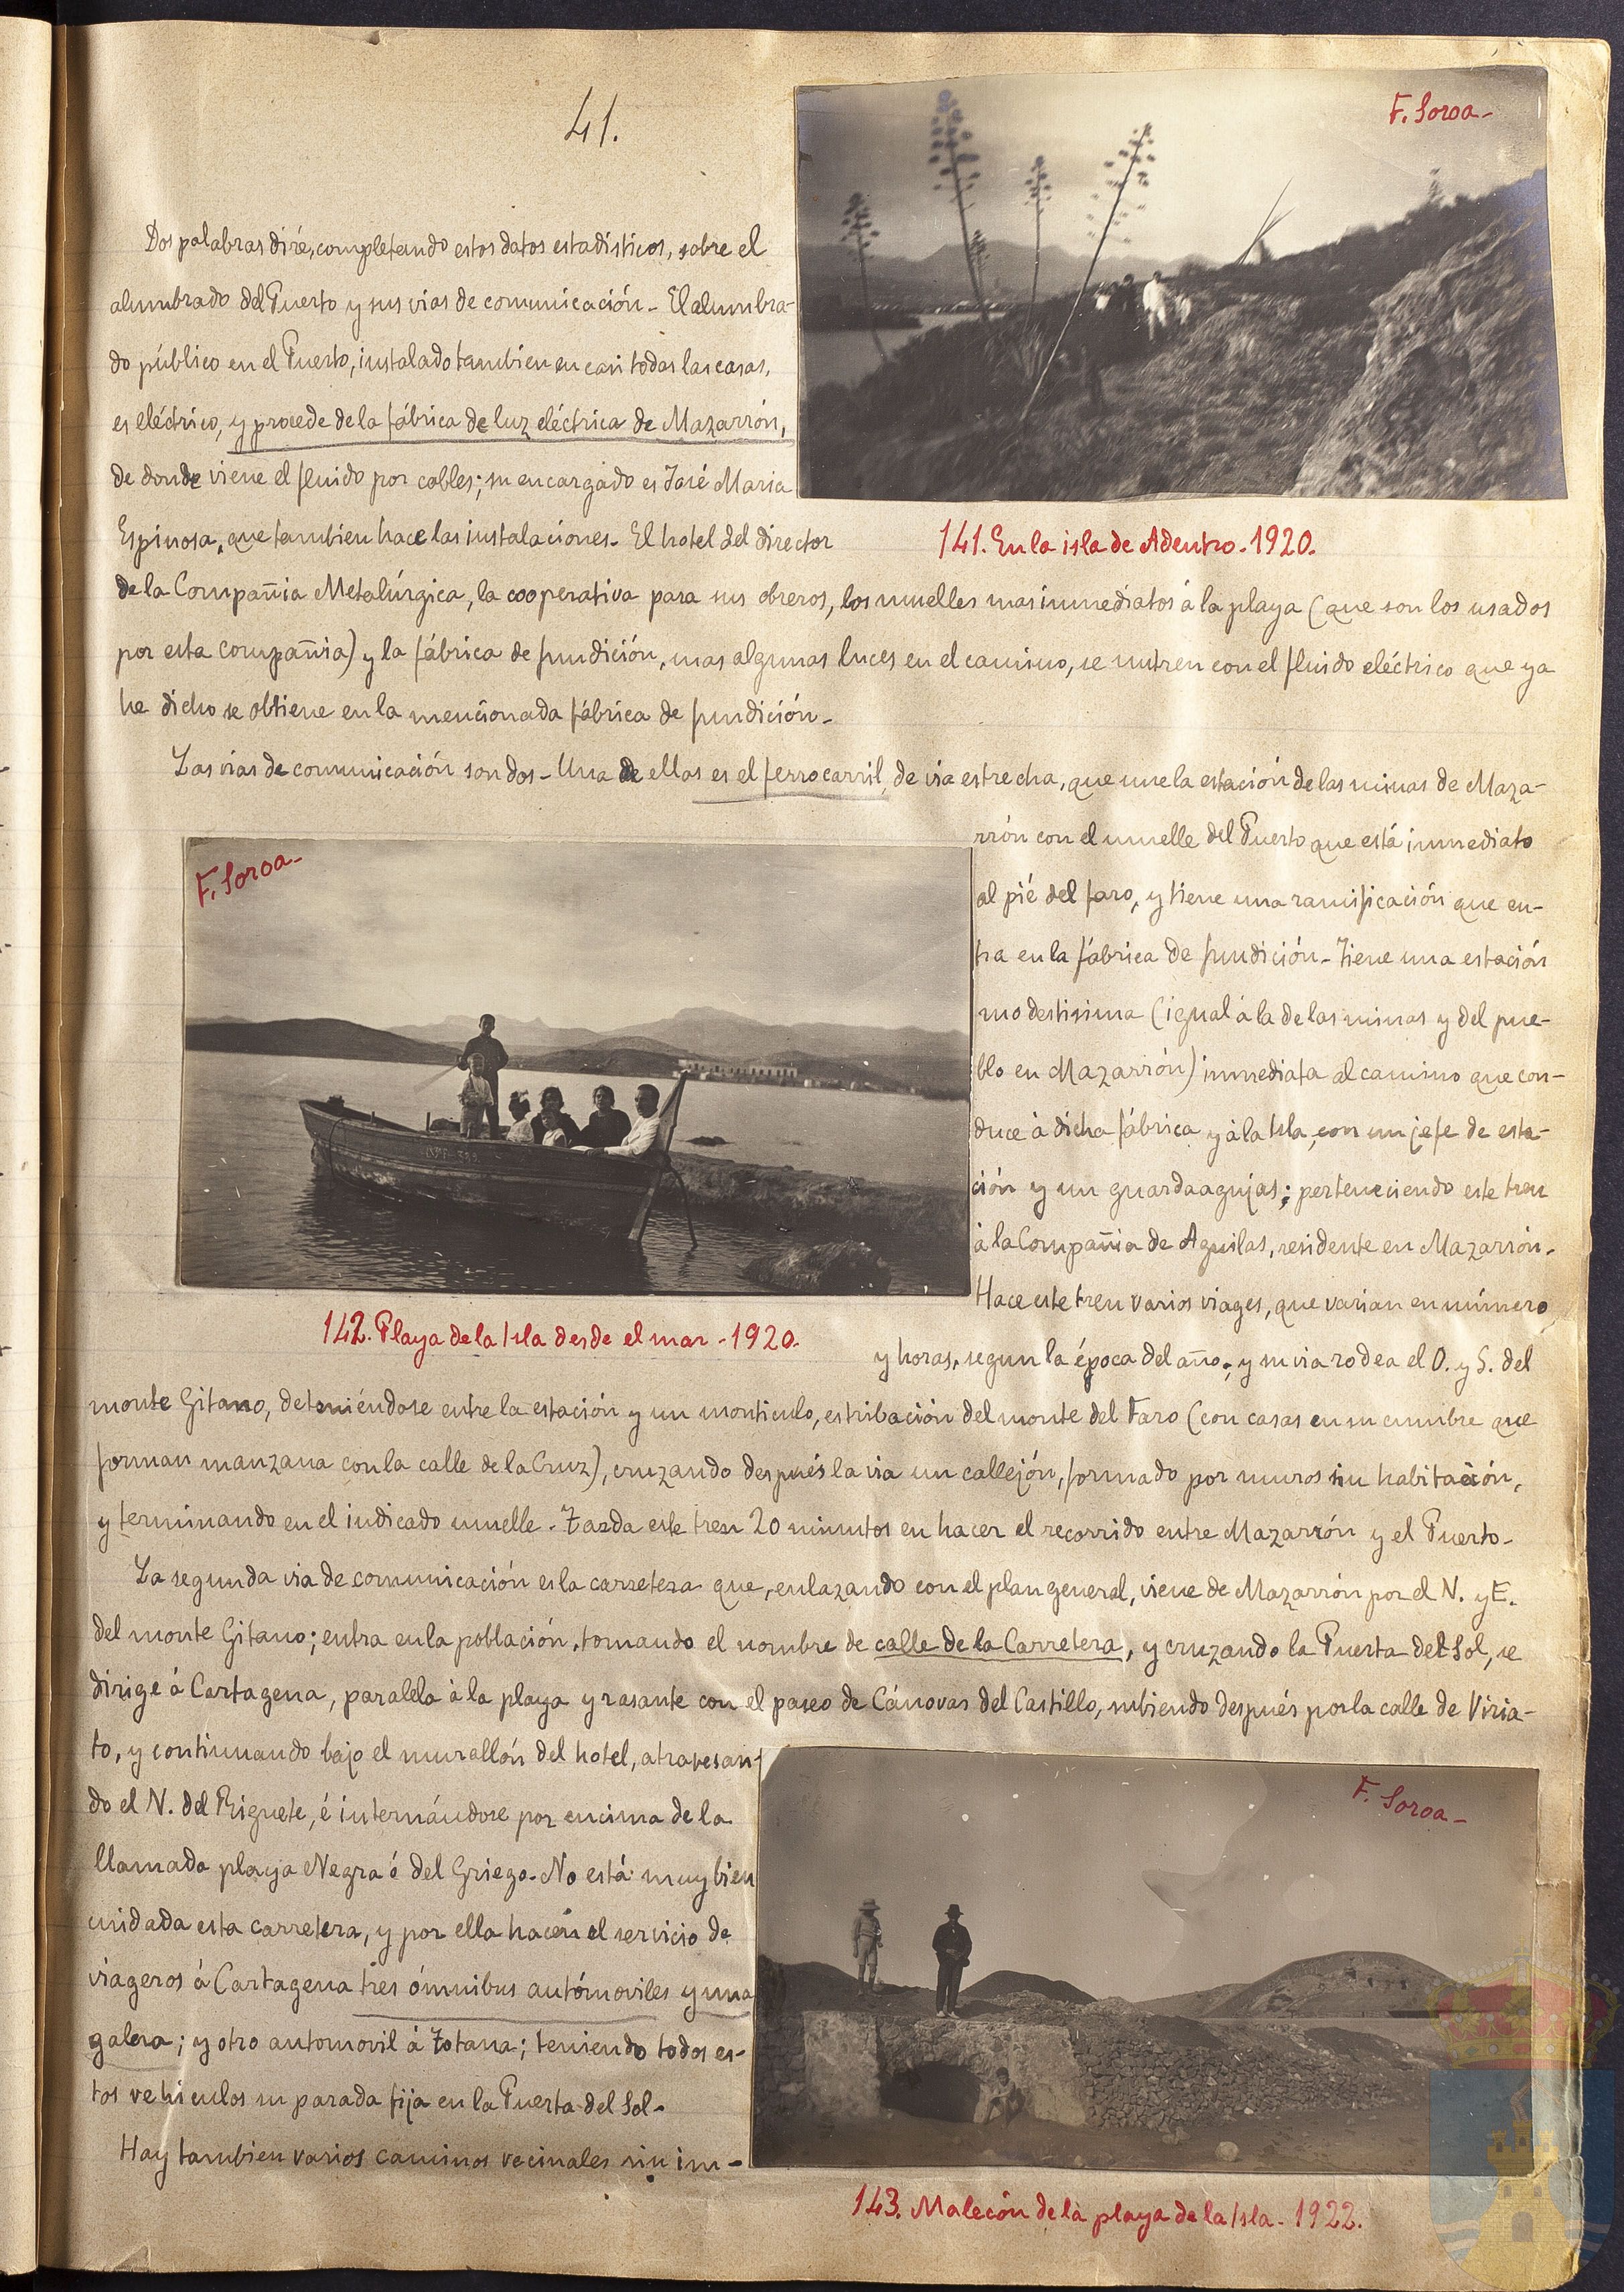 41.
F. Soroa-
Dos palabras diré, completando estos datos estadísticos, sobre el
alumbrado del Puerto y sus vias de comunicación - El alumbra-
do público en el Puerto, instalado tambien en casi todas las casas,
es eléctrico, y procede de la fábrica de luz eléctrica de Mazarrón,
de donde viene el fluido por cables; su encargado es José Maria
Espinosa, que tambien hace las instalaciones. El hotel del director
141. En la isla de Adentro - 1920.
de la Compañia Metalúrgica, la cooperativa para sus obreros, los muelles mas inmediatos á la playa (que son los usados
por esta compañia) y la fábrica de fundición, mas algunas luces en el camino, se nutren con el fluido eléctrico que ya
he dicho se obtiene en la mencionada fábrica de fundición -
Las vias de comunicación son dos - Una de ellas es el ferrocarril, de via estrecha, que une la estación de las minas de Maza-
rrón con el muelle del Puerto que está inmediato
al pié del faro, y tiene una ramificación que en-
tra en la fábrica de fundición - Tiene una estación
modestisima (igual á la de las minas y del pue-
blo en Mazarrón) inmediata al camino que con-
duce á dicha fábrica y á la Isla, con un jefe de esta-
ción y un guardaagujas; perteneciendo este tren
á la Compañia de Aguilas, residente en Mazarrón -
Hace este tren varios viages, que varian en número
F. Soroa-
142. Playa de la Isla desde el mar - 1920.
y horas, segun la época del año; y su via rodea el O. y S. del
monte Gitano, deteniéndose entre la estación y un monticulo, estribación del monte del Faro (con casas en su cumbre que
forman manzana con la calle de la Cruz), cruzando después la via un callejón, formado por muros sin habitación,
y terminando en el indicado muelle - Tarda este tren 20 minutos en hacer el recorrido entre Mazarrón y el Puerto -
La segunda via de comunicación es la carretera que, enlazando con el plan general, viene de Mazarrón por el N. y E.
del monte Gitano; entra en la población, tomando el nombre de calle de la Carretera, y cruzando la Puerta del Sol, se
dirige á Cartagena, paralela á la playa y rasante con el paseo de Cánovas del Castillo, subiendo después por la calle de Viria-
to, y continuando bajo el murallón del hotel, atravesan-
do el N. del Riguete, é internándose por encima de la
llamada playa Negra ó del Griego - No está muy bien
cuidada esta carretera, y por ella hacen el servicio de
viageros á Cartagena tres ómnibus autómoviles y una
galera; y otro automovil á Totana; teniendo todos es-
tos vehiculos su parada fija en la Puerta del Sol -
Hay tambien varios caminos vecinales sin im-
F. Soroa-
143. Malecón de la playa de la Isla - 1922.